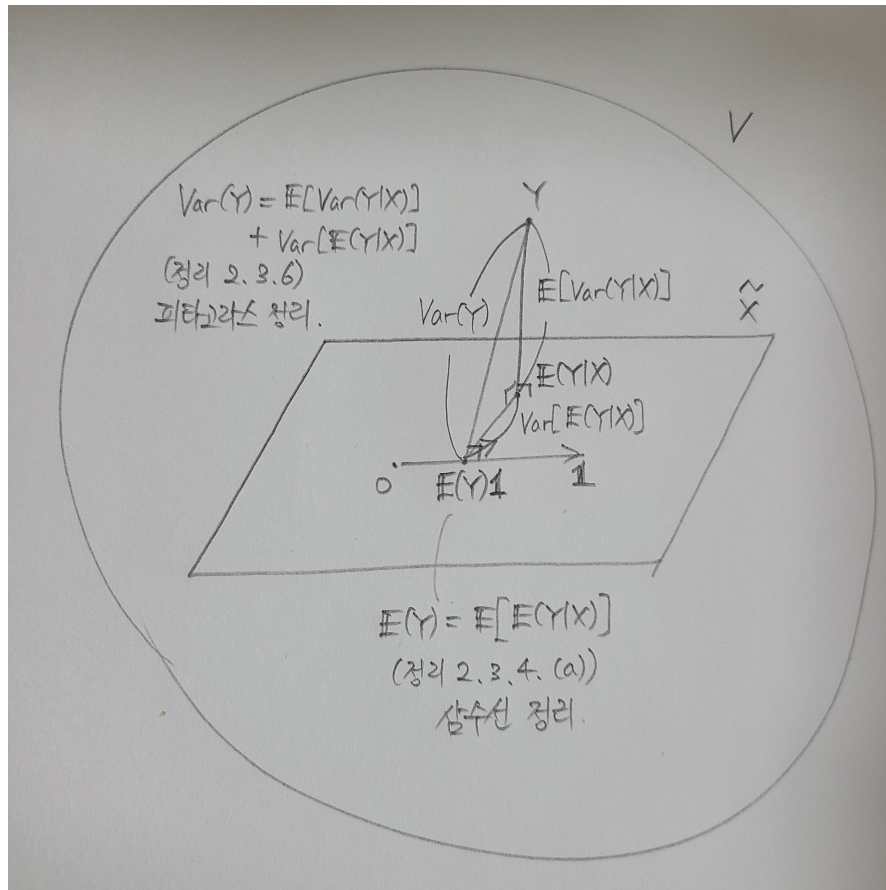 V
Var(Y) = 𝔼[Var(Y|X)]
+ Var[𝔼(Y|X)]
(정리 2.3.6)
피타고라스 정리.
Y
Var(Y)
𝔼[Var(Y|X)]
X̃
𝔼(Y|X)
Var[𝔼(Y|X)]
0
𝔼(Y)𝟙
𝟙
𝔼(Y) = 𝔼[𝔼(Y|X)]
(정리 2.3.4.(a))
삼수선 정리.